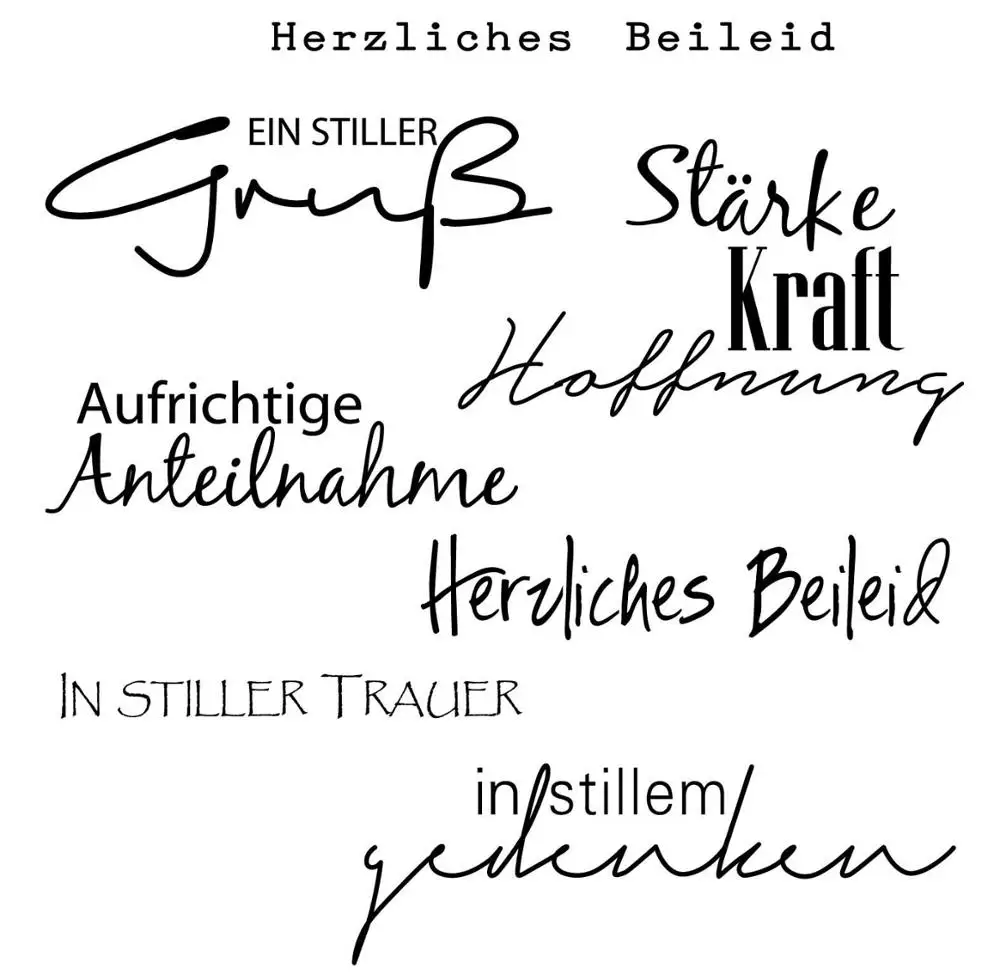 Herzliches Beileid
EIN STILLER
Gruß
Stärke
Kraft
Hoffnung
Aufrichtige
Anteilnahme
Herzliches Beileid
IN STILLER TRAUER
in stillem
gedenken